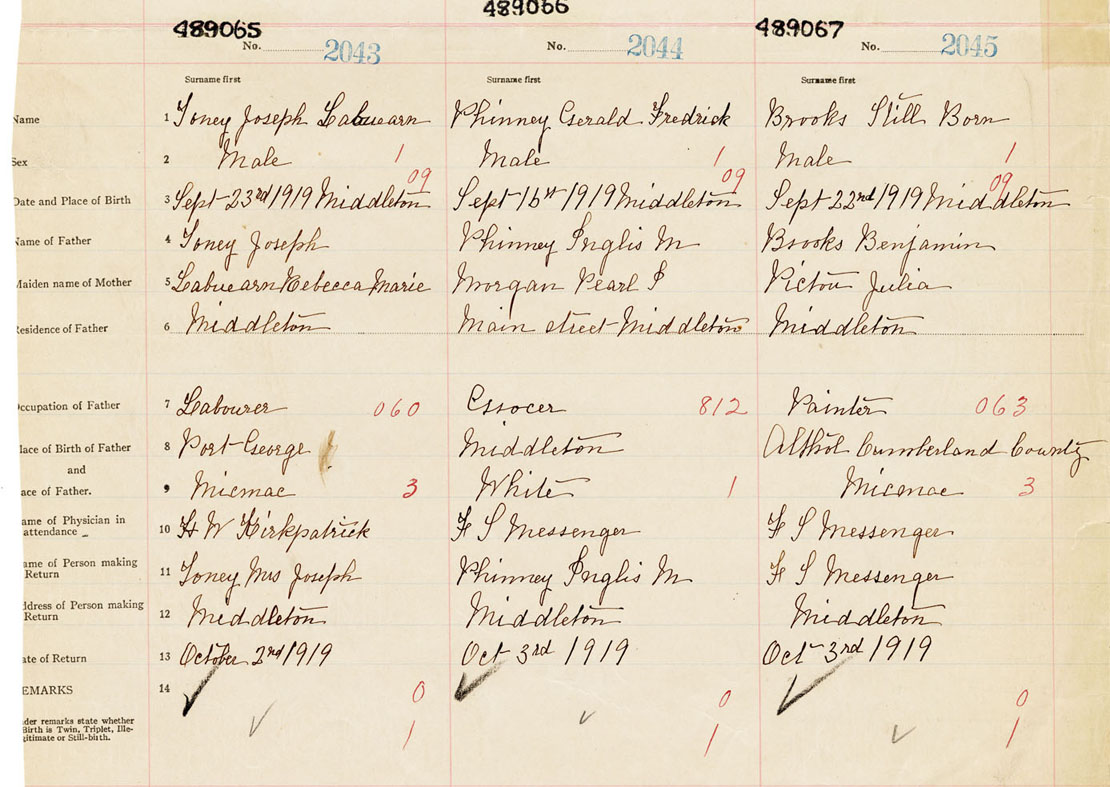 489065 489066 489067
No. 2043 No. 2044 No. 2045
Surname first Surname first Surname first
Name 1 Toney Joseph Labuearn Phinney Gerald Fredrick Brooks Still Born
Sex 2 Male 1 Male 1 Male 1
09 09 09
Date and Place of Birth 3 Sept 23rd 1919 Middleton Sept 1919 Middleton Sept 22nd 1919 Middleton
Name of Father 4 Toney Joseph Phinney Inglis M Brooks Benjamin
Maiden name of Mother 5 Labuearn Rebecca Marie Morgan Pearl Pictou Julia
Residence of Father 6 Middleton Main street Middleton Middleton
Occupation of Father 7 Labourer 060 812 Painter 063
lace of Birth of Father 8 Port George Middleton Althol Cumberland County
and
ace of Father. 9 Micmac 3 White 1 Micmac 3
ame of Physician in
attendance 10 H W Kirkpatrick F S Messenger F S Messenger
ame of Person making
Return 11 Toney Mrs Joseph Phinney Inglis M F S Messenger
ddress of Person making
Return 12 Middleton Middleton Middleton
ate of Return 13 October 2nd 1919 Oct 3rd 1919 Oct 3rd 1919
EMARKS 14 0 0 0
der remarks state whether
Birth is Twin, Triplet, Ille-
gitimate or Still-birth. 1 1 1